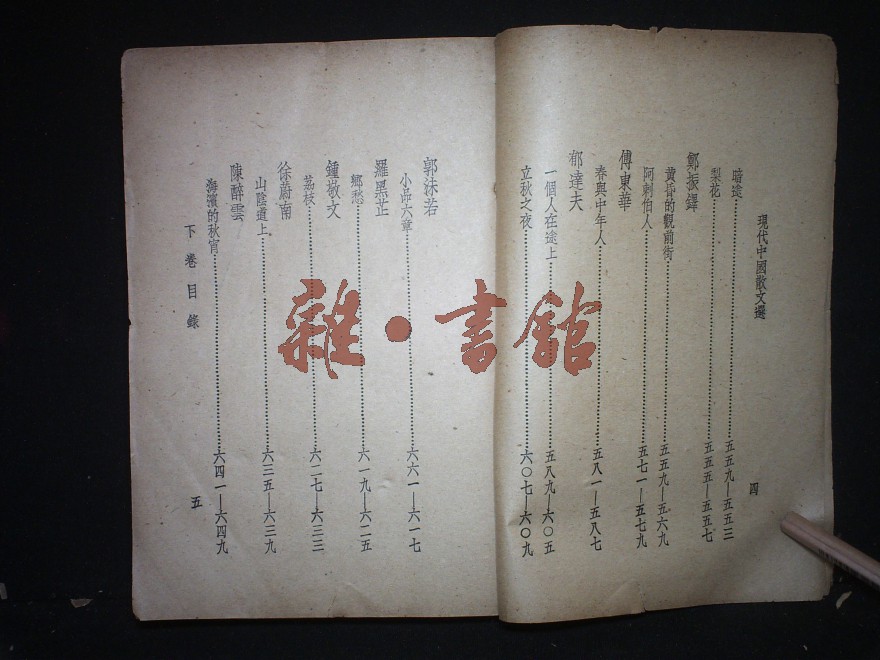 現代中國散文選
四
暗途……五五九—五五三
梨花……五五五—五五七
鄭振鐸
黃昏的觀前街……五五九—五六九
阿剌伯人……五七一—五七九
傅東華
春與中年人……五八一—五八七
郁達夫
一個人在途上……五八九—六〇五
立秋之夜……六〇七—六〇九
郭沫若
小品六章……六六一—六一七
羅黑芷
鄉愁……六一九—六二五
鍾敬文
荔枝……六二七—六三三
徐蔚南
山陰道上……六三五—六三九
陳醉雲
海濱的秋宵……六四一—六四九
下卷目錄
五
雜·書館